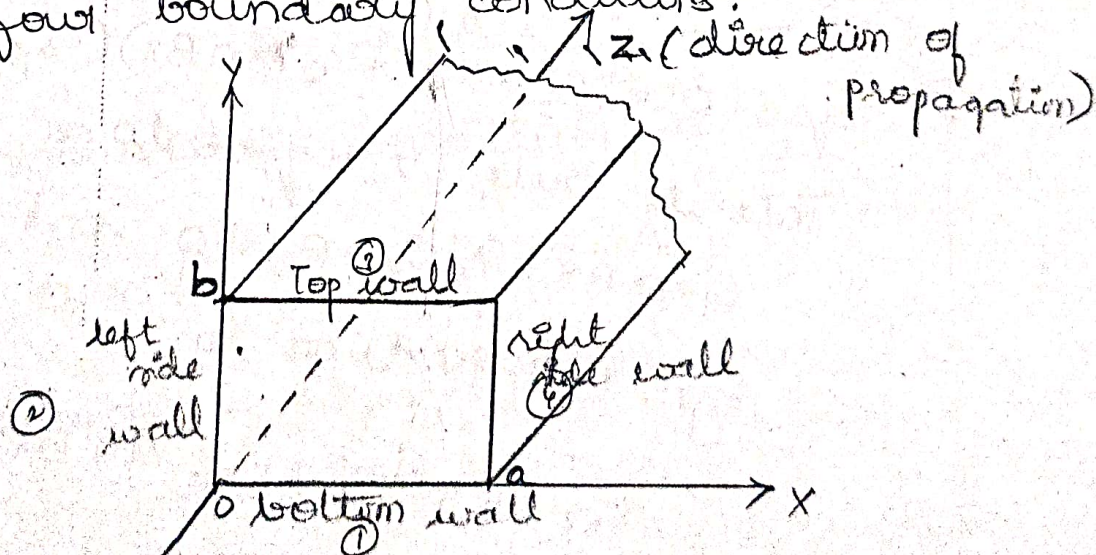 four boundary conditions.
Y
Z (direction of
propagation)
b
③
Top wall
left
side
② wall
right
side wall
④
a
0
X
bottom wall
①